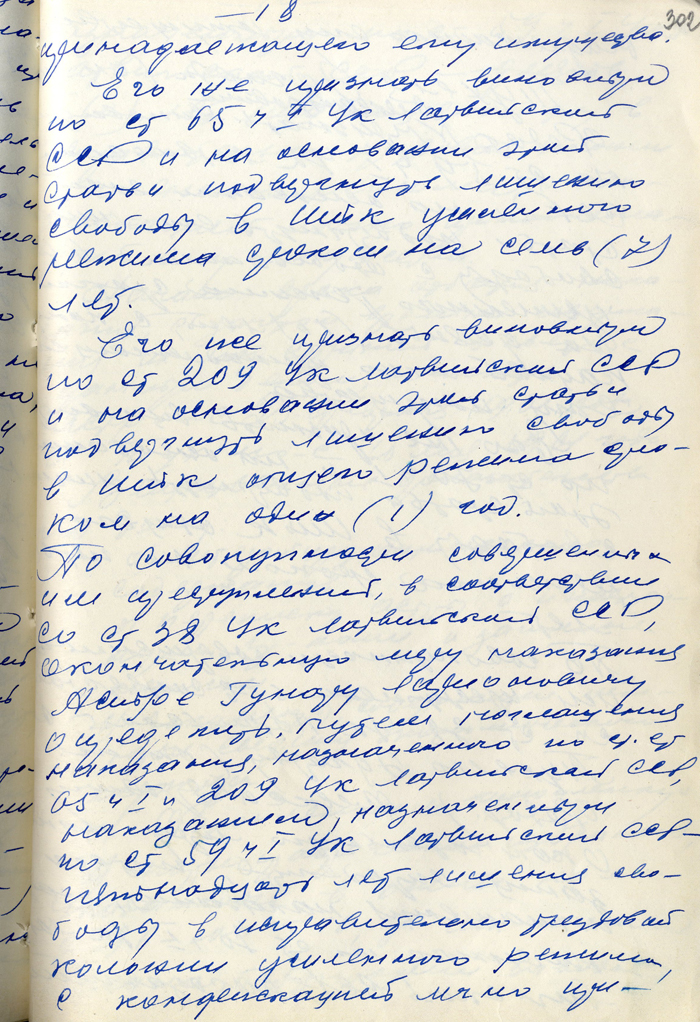 – 18
302
принадлежащего ему имущества.
Его же признать виновным
по ст 65 ч I УК Латвийской
ССР и на основании этой
статьи подвергнуть лишению
свободы в ИТК усиленного
режима сроком на семь (7)
лет.
Его же признать виновным
по ст 209 УК Латвийской ССР
и на основании этой статьи
подвергнуть лишению свободы
в ИТК общего режима сро-
ком на один (1) год.
По совокупности совершенных
им преступлений, в соответствии
со ст 38 УК Латвийской ССР,
окончательную меру наказания
Гунару
определить, путем поглощения
наказания, назначенного по ст.ст
65 ч I и 209 УК Латвийской ССР,
наказанием, назначенным
по ст 59 ч I УК Латвийской ССР –
пятнадцать лет лишения сво-
боды в исправительно трудовой
колонии усиленного режима,
с конфискацией лично при-